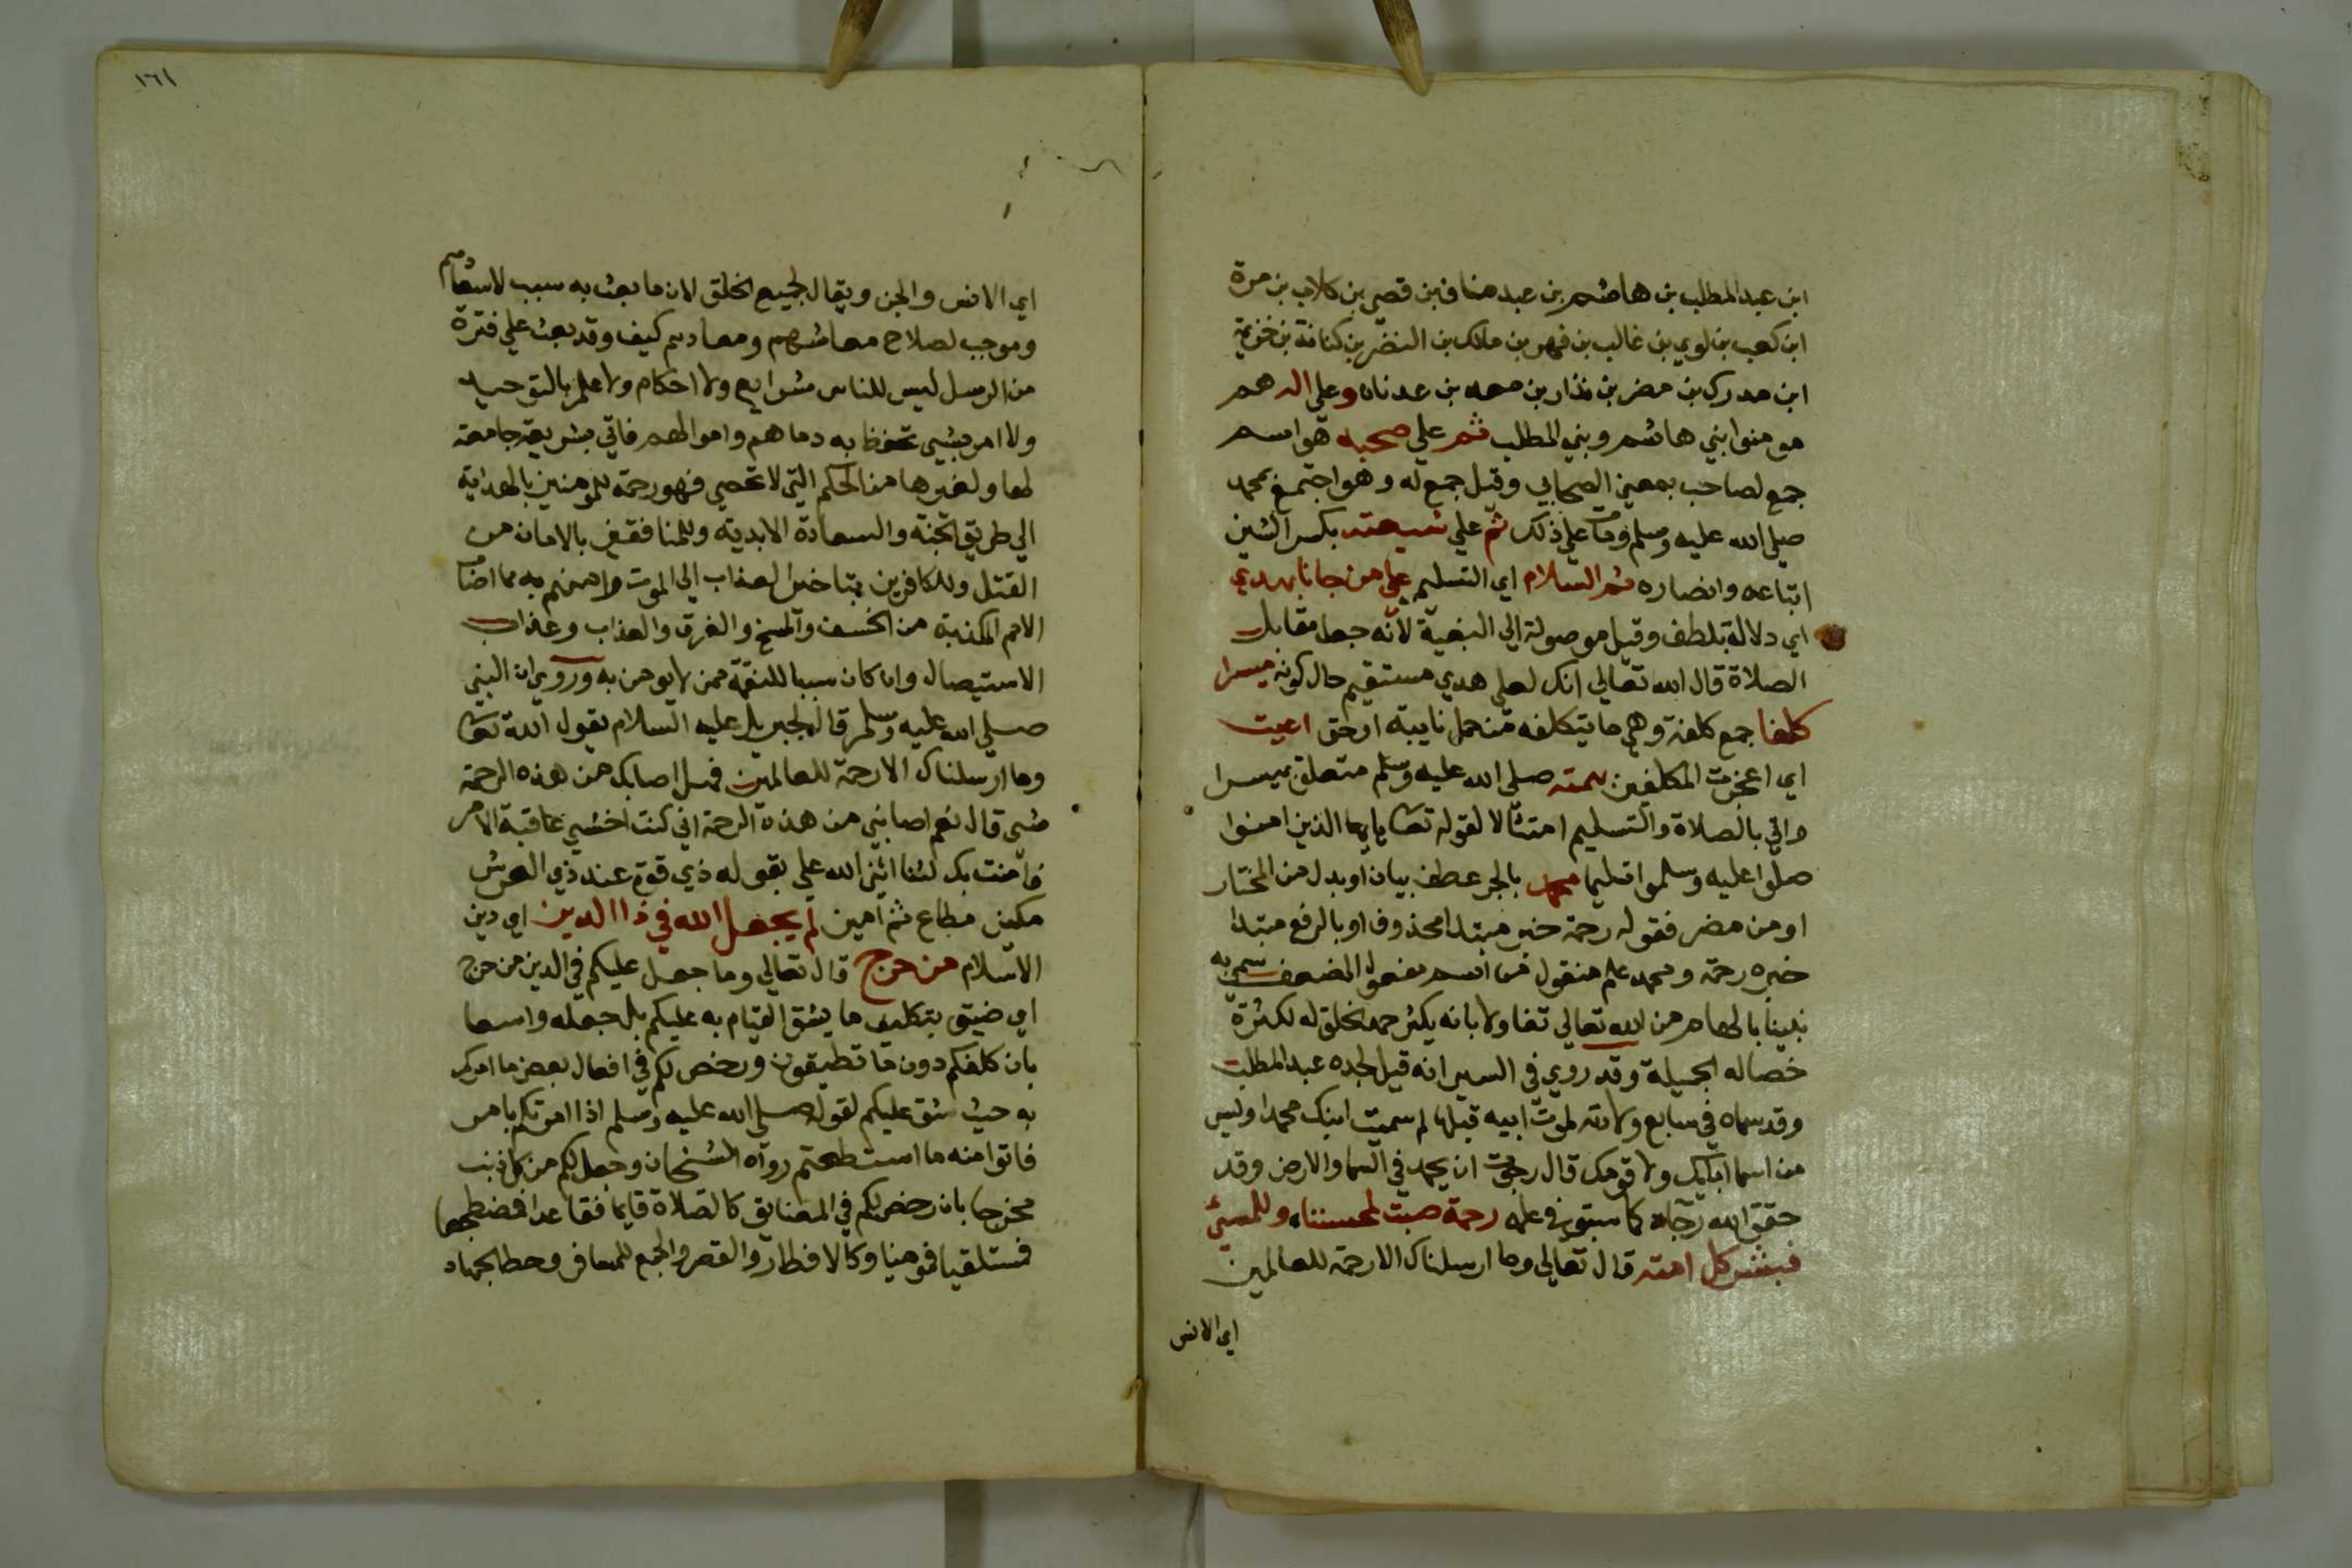 ابن عبد المطلب بن هاشم بن عبد مناف بن قصي بن كلاب بن مرة
ابن كعب بن لوي بن غالب بن فهر بن مالك بن النضر بن كنانة بن خزيمة
ابن مدركة بن مضر بن نذار بن معد بن عدنان وعلى اله هم
مومنوا بني هاشم وبني المطلب ثم علي صحبه هو اسم
جمع لصاحب بمعين الصحابي وقيل جمع له وهو اجتمع بمحمد
صلى الله عليه وسلم ومات علي ذلك ثم علي شيعته بكسر الشين
اتباعه وانصاره ثم السلام اي التسليم علي من جانا بهدي
اي دلالة بلطف وقيل موصولة الي البغية لانه جعل مقابل
الصلاة قال الله تعالي انك لعلي هدي مستقيم حال كونه ميسرا
كلفا جمع كلفة وهي ما يتكلفه من حمل نايبة او حق اعيت
اي اعجزت المكلفين سمته صلى الله عليه وسلم متعلق بميسرا
واتي بالصلاة والتسليم امتثالا لقوله تعا يايها الذين امنوا
صلوا عليه وسلموا تسليما محمد بالجر عطف بيان او بدل من المختار
او من مضر فقوله رحمة خبر مبتدا محذوف او بالرفع مبتدا
خبره رحمة ومحمد علم منقول من اسم مفعول المضعف سمي به
نبينا بالهام من الله تعالي تفاولا بانه يكثر حمد الخلق له لكثرة
خصاله الجميلة وقد روي في السير انه قيل لجده عبد المطلب
وقد سماه في سابع ولادته لموت ابيه قبلها لم سميت ابنك محمدا وليس
من اسما ابايك ولا قومك قال رجوت ان يحمد في السما والارض وقد
حقق الله رجاه كما سبق في علمه رحمة صبت لمحسننا وللمسئ
فبشر كل امته قال تعالي وما ارسلناك الا رحمة للعالمين
اي الانس
١٦١
اي الانس والجن ويقال لجميع الخلق لان ما بعث به سبب لاسعادهم
وموجب لصلاح معاشهم ومعادهم كيف وقد بعث علي فترة
من الرسل ليس للناس شرايع ولا احكام ولا علم بالتوحيد
ولا امر بشي تحفظ به دماهم واموالهم فاتي بشريعة جامعة
لها ولغيرها من الحكم التي لا تحصي فهو رحمة للمومنين بالهداية
الي طريق الجنة والسعادة الابدية وللمنافقين بالامان من
القتل وللكافرين بتاخير العذاب الي الموت وامنهم به مما اصاب
الامم المكذبة من الخسف والمسخ والغرق والعذاب وعذاب
الاستيصال وان كان سببا للنقمة ممن لا يومن به وروي ان النبي
صلى الله عليه وسلم قال لجبريل عليه السلام يقول الله تعا
وما ارسلناك الا رحمة للعالمين فهل اصابك من هذه الرحمة
شي قال نعم اصابني من هذه الرحمة اني كنت اخشي عاقبة الامر
فامنت بك لثنا اثني الله علي بقوله ذي قوة عند ذي العرش
مكين مطاع ثم امين لم يجعل الله في ذا الدين اي دين
الاسلام من حرج قال تعالي وما جعل عليكم في الدين من حرج
اي ضيق بتكليف ما يشق القيام به عليكم بل جعله واسعا
بان كلفكم دون ما تطيقون ورخص لكم في افعال بعض ما امركم
به حيث شق عليكم لقوله صلى الله عليه وسلم اذا امرتكم بامر
فاتوا منه ما استطعتم رواه الشيخان وجعل لكم من كل ذنب
مخرجا بان رخص لكم في المضايق كالصلاة قايما فقاعدا فمضطجعا
فمستلقيا فموميا وكالافطار والقصر والجمع للمسافر وحط الجهاد